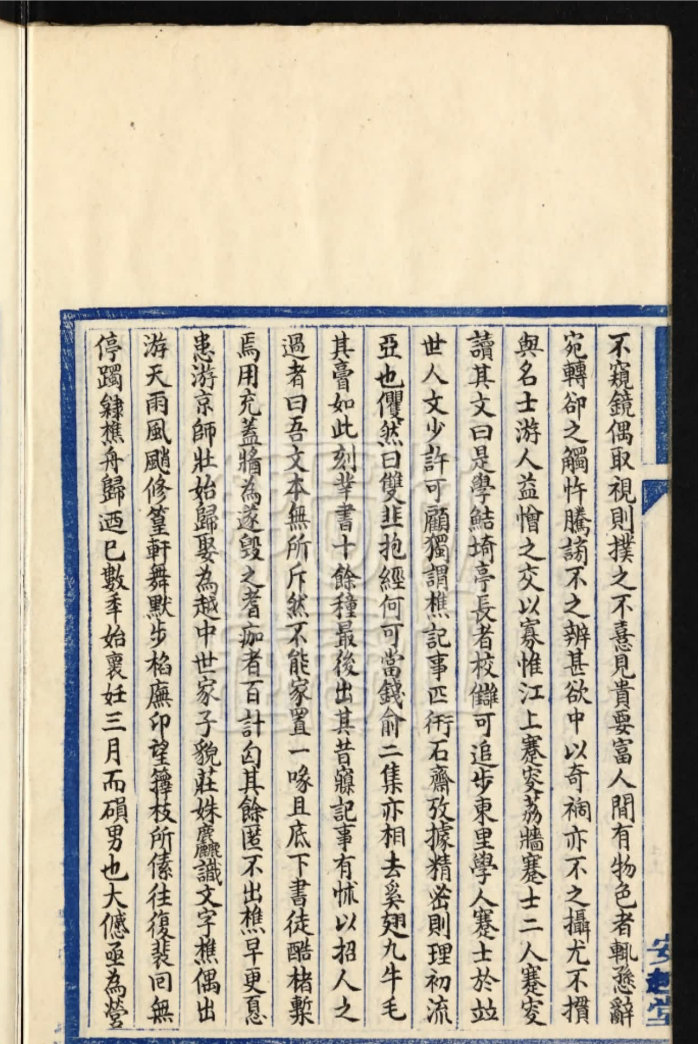 不窺鏡偶取視則撲之不憙見貴要富人閒有物色者輒愻辭
宛轉卻之觸忤騰謗不之辨甚欲中以奇禍亦不之攝尤不摜
與名士游人益憎之交以寡惟江上蹇安荔牆蹇士二人蹇安
讀其文曰是學鮚埼亭長者校讎可追步東里學人蹇士於竝
世人文少許可顧獨謂樵記事匹術石齋攷據精密則理初流
亞也戄然曰雙韭抱經何可當錢俞二集亦相去奚翅九牛毛
其響如此刻丵書十餘種最後出其昔寱記事有怵以招人之
過者曰吾文本無所斥然不能家置一喙且底下書徒酷楮槧
焉用充蓋牆為遂毀之耆痂者百計匃其餘匿不出樵早更息
恚游京師壯始歸娶為越中世家子貌莊姝麤識文字樵偶出
游天雨風颸修篁軒舞默步檐廡卬望籜枝所傃往復裴回無
停躅肄樵舟歸迺已數年始褱妊三月而磒男也大憾亟為營
安越堂